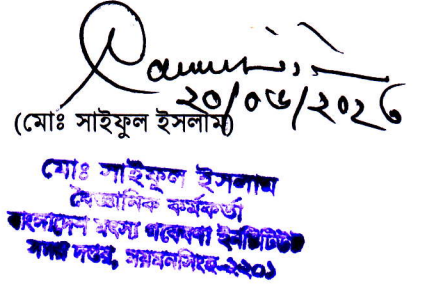 ২০/০৮/২০২৫
(মোঃ সাইফুল ইসলাম)
মোঃ সাইফুল ইসলাম
বৈজ্ঞানিক কর্মকর্তা
বাংলাদেশ মৎস্য গবেষণা ইনস্টিটিউট
সদর দপ্তর, ময়মনসিংহ-২২০১